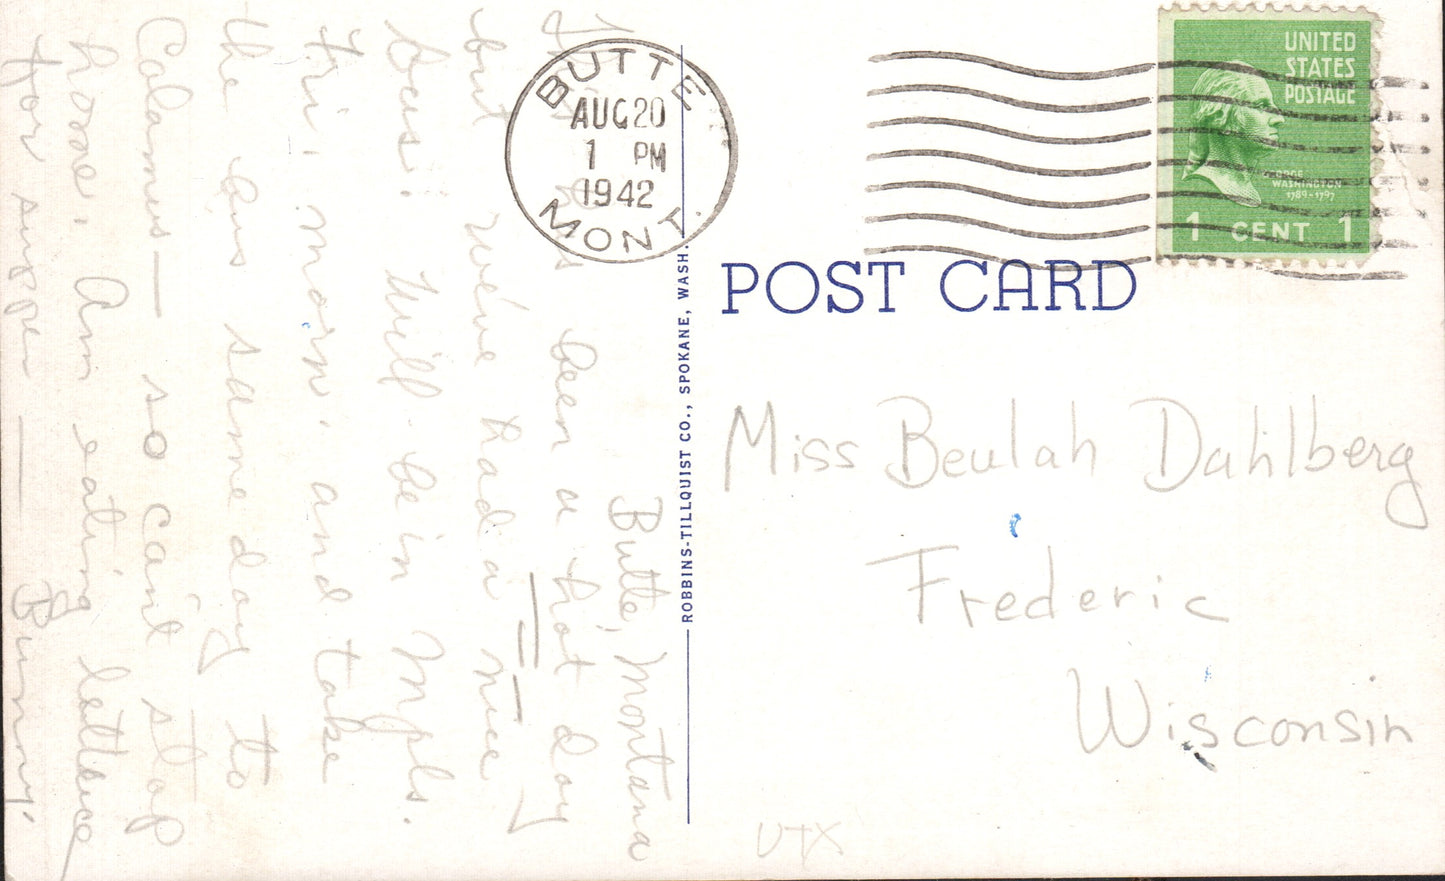 Butte, Montana
This has been a hot day
but we've had a nice
bus. Will be in Mpls.
Fri. morn. and take
the bus same day to
Calamus — so can't stop
home. Am eating lettuce
for supper —
Bunny.
BUTTE
AUG 20
1 PM
1942
MONT.
UNITED
STATES
POSTAGE
WASHINGTON
1789-1797
1 CENT 1
POST CARD
ROBBINS-TILLQUIST CO., SPOKANE, WASH.
Miss Beulah Dahlberg
Frederic
Wisconsin
UTX